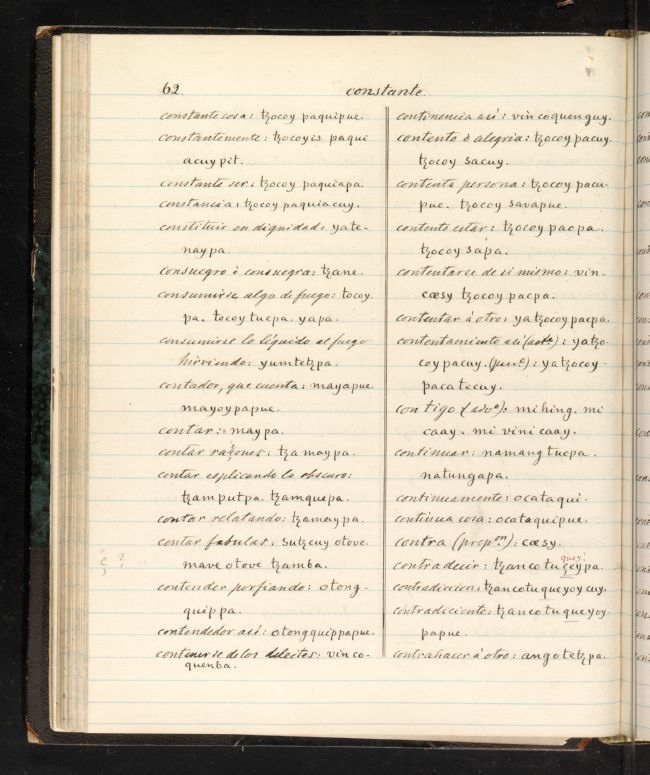 62.
constante.
constante cosa: tzocoy paquipue.
constantemente: tzocoyis paqui
acuy pit.
constante ser: tzocoy paquiapa.
constancia: tzocoy paquiacuy.
constituir en dignidad: yate-
naypa.
consuegro ò consuegra: tzane.
consumirse algo de fuego: tocoy.
pa. tocoy tucpa. yapa.
consumirse lo líquido al fuego
hirviendo: yumtetzpa.
contador, que cuenta: mayapue.
mayoypapue.
contar: maypa.
contar razones: tzamaypa.
contar esplicando lo obscuro:
tzamputpa. tzamquepa.
contar relatando: tzamaypa.
contar fabulas: sutzcuy otove.
mave otove tzamba.
contender porfiando: otong-
quippa.
contendedor asi: otongquippapue.
contenerse de los deleites: vinco-
quenba.
continencia asi: vincoquenguy.
contento ò alegria: tzocoy pacuy.
tzocoy sacuy.
contenta persona: tzocoy pacu-
pue. tzocoy savapue.
contento estar: tzocoy pacpa.
tzocoy sápa.
contentarse de si mismo: vin-
cœsy tzocoy pacpa.
contentar á otro: yatzocoy pacpa.
contentamiento asi (act.e): yatzo-
coy pacuy. (pas.e): yatzocoy-
pacatecuy.
contigo (adv.o): mihing. mi
caay. mi vini caay.
continuar: namang tucpa.
natungapa.
continuamente: ocataqui.
continua cosa: ocataquipue.
contra (prep.on): cœsy.
quey?
contradecir: tzancotuçeypa.
ç ?
contradiccion: tzancotuqueyoycuy.
contradiciente: tzancotuqueyoy-
papue.
contrahacer á otro: angotetzpa.